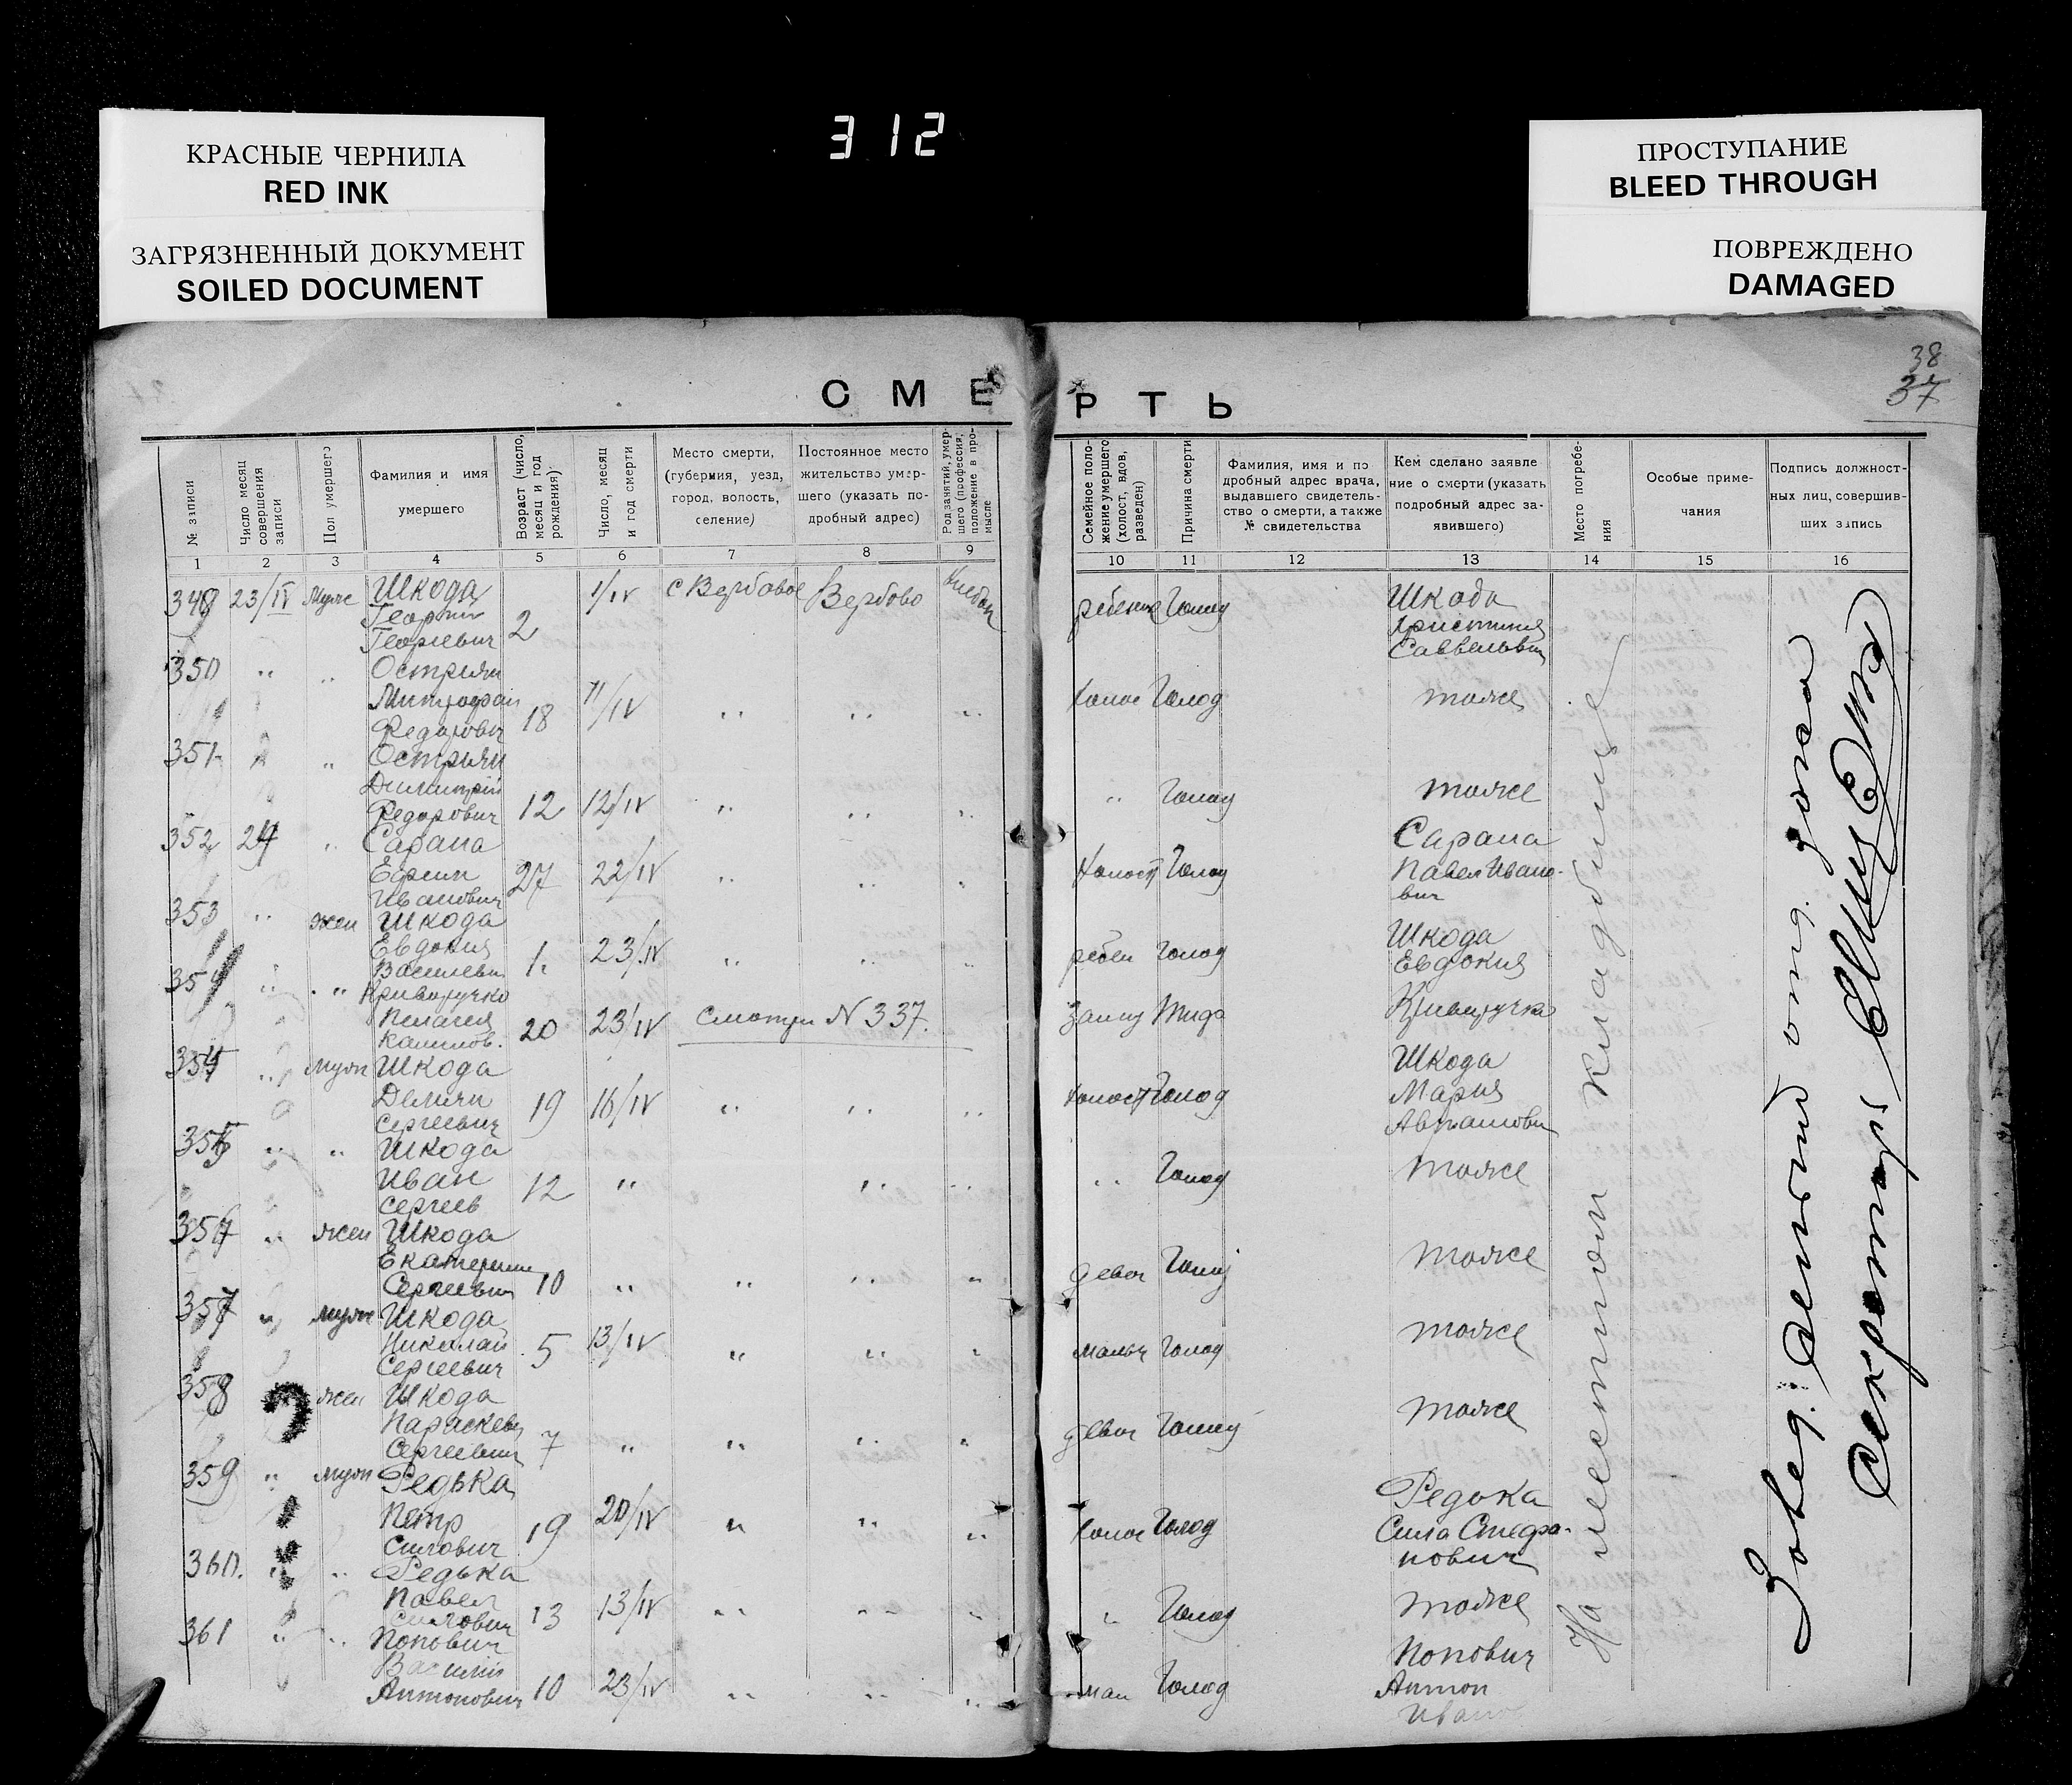 КРАСНЫЕ ЧЕРНИЛА
RED INK
ЗАГРЯЗНЕННЫЙ ДОКУМЕНТ
SOILED DOCUMENT
312
ПРОСТУПАНИЕ
BLEED THROUGH
ПОВРЕЖДЕНО
DAMAGED
38
37
СМЕРТЬ
№ записи
Число месяц совершения записи
Пол умершего
Фамилия и имя умершего
Возраст (число, месяц и год рождения)
Число, месяц и год смерти
Место смерти, (губерния, уезд, город, волость, селение)
Постоянное место жительство умершего (указать подробный адрес)
Род занятий, умершего (профессия, положение в промысле
Семейное положение умершего (холост, вдов, разведен)
Причина смерти
Фамилия, имя и подробный адрес врача, выдавшего свидетельство о смерти, а также № свидетельства
Кем сделано заявление о смерти (указать подробный адрес заявившего)
Место погребения
Особые примечания
Подпись должностных лиц, совершивших запись
1 2 3 4 5 6 7 8 9 10 11 12 13 14 15 16
349 23/IV Муж Шкода Георгий Георгиевич 2 1/IV с Вербовое Вербово ребенок Голод Шкода Христиния
350 " " Остряни Митрофан Федорович 18 11/IV " " " Холос Голод тоже
351 " Остряни Димитрий Федорович 12 12/IV " " " " Голод тоже
352 24 " Сарана Иванович 27 22/IV " " " Холост Голод Сарана Павел Иванович
353 " жен Шкода Евдокия Василевн 1 23/IV " " " ребен Голод Шкода Евдокия
354 " " Криворучко Пелагея 20 23/IV Смотри N 337. Криворучка
" муж Шкода Демян Сергеевич 19 16/IV " " " холост Голод Шкода Мария
" " Шкода Иван Сергеев 12 " " " " Голод тоже
" жен Шкода Екатерина Сергеевн 10 " " " " девоч Голод тоже
357 " муж Шкода Николай Сергеевич 5 13/IV " " " мальч Голод тоже
358 жен Шкода Параскева Сергеевн 7 " " " " девоч Голод тоже
359 " муж Редька Петр Силович 19 20/IV " " " холос Голод Редька Сила Стефанович
360. " " Редька Павел Силович 13 13/IV " " " " Голод тоже
361 " " Попович Василий Антонович 10 23/IV " " " мал Голод Попович Антон Иванов
На местном кладбище
Завед.
Секретарь